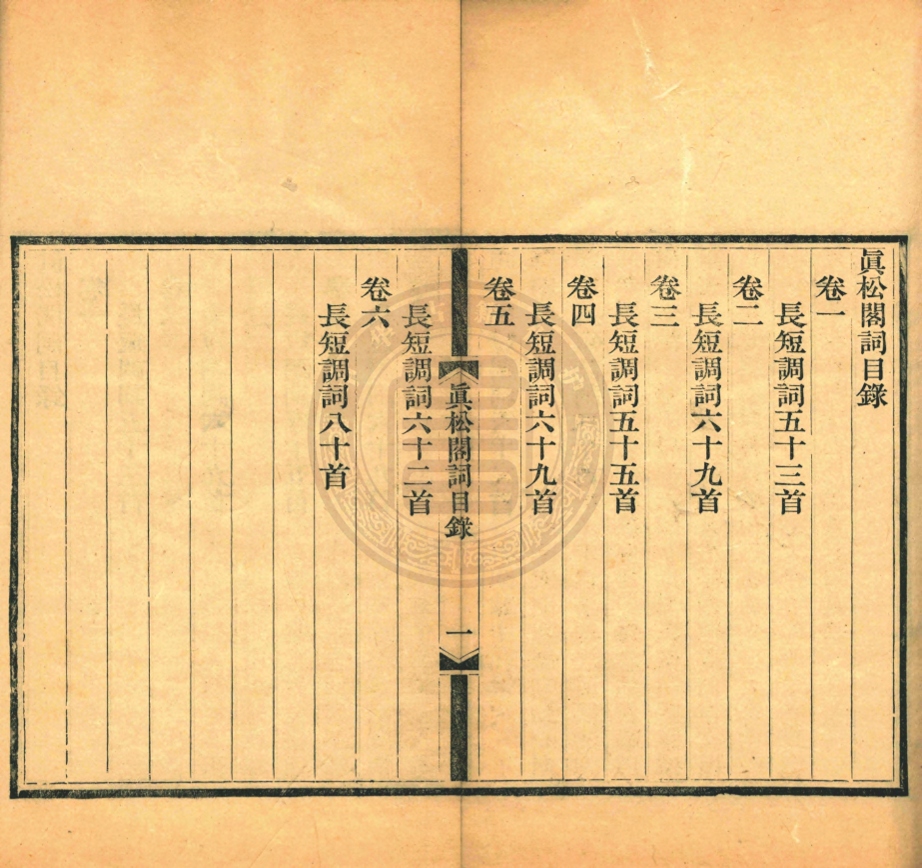 眞松閣詞目錄
卷一
長短調詞五十三首
卷二
長短調詞六十九首
卷三
長短調詞五十五首
卷四
長短調詞六十九首
卷五
眞松閣詞目錄
一
長短調詞六十二首
卷六
長短調詞八十首